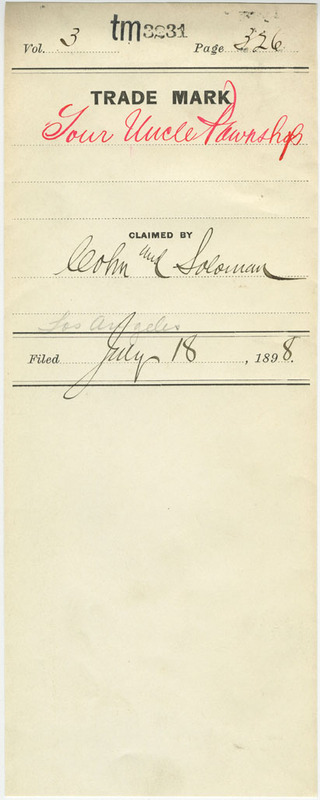 Vol. 3 tm3231 Page 326
TRADE MARK
Your Uncle Pawnshop
CLAIMED BY
Cohn and Soloman
Los Angeles
Filed July 18, 1898.